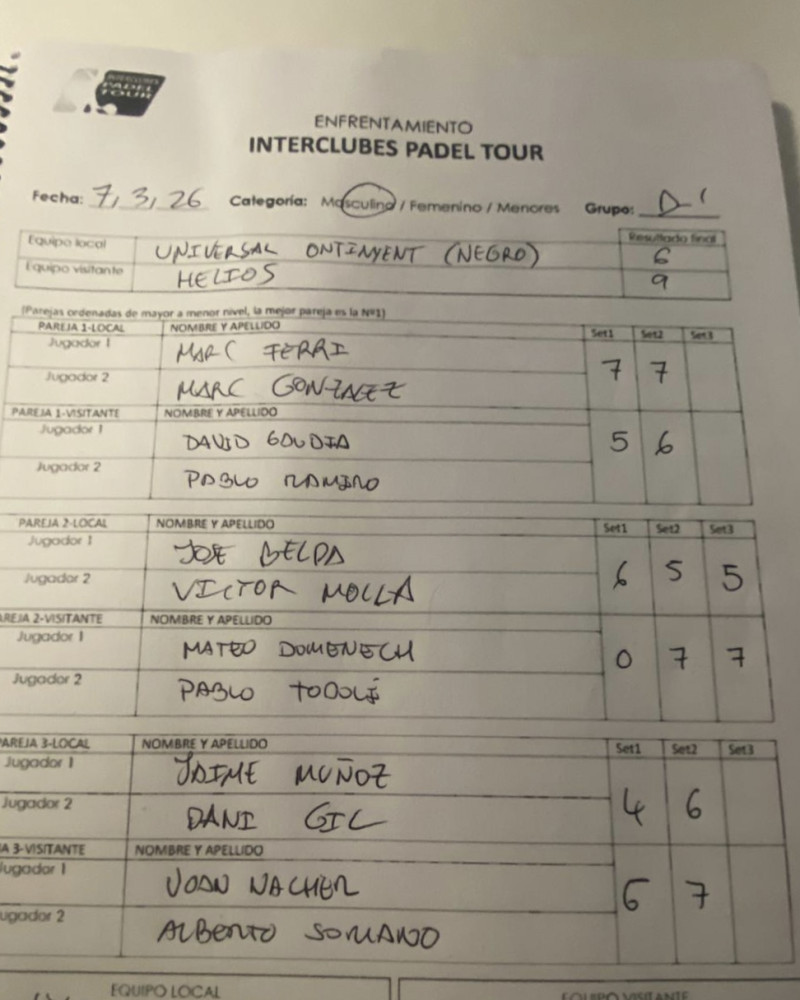 INTERCLUBES
PADEL
TOUR
ENFRENTAMIENTO
INTERCLUBES PADEL TOUR
Fecha: 7, 3, 26 Categoría: Masculino / Femenino / Menores Grupo: D'
Resultado final
Equipo local UNIVERSAL ONTINYENT (NEGRO) 6
Equipo visitante HELIOS 9
(Parejas ordenadas de mayor a menor nivel, la mejor pareja es la Nº1)
PAREJA 1-LOCAL NOMBRE Y APELLIDO Set1 Set2 Set3
Jugador 1 MARC FERRI
7 7
Jugador 2 MARC GONZALEZ
PAREJA 1-VISITANTE NOMBRE Y APELLIDO
Jugador 1 DAVID GOUDIA
5 6
Jugador 2 PABLO RAMIRO
PAREJA 2-LOCAL NOMBRE Y APELLIDO Set1 Set2 Set3
Jugador 1 JOSE BELDA
6 5 5
Jugador 2 VICTOR MOLLA
AREJA 2-VISITANTE NOMBRE Y APELLIDO
Jugador 1 MATEO DOMENECH
0 7 7
Jugador 2 PABLO TODOLÍ
PAREJA 3-LOCAL NOMBRE Y APELLIDO Set1 Set2 Set3
Jugador 1 JAIME MUÑOZ
4 6
Jugador 2 DANI GIL
A 3-VISITANTE NOMBRE Y APELLIDO
Jugador 1 JOAN NACHER
6 7
ugador 2 ALBERTO SORIANO
EQUIPO LOCAL EQUIPO VISITANTE